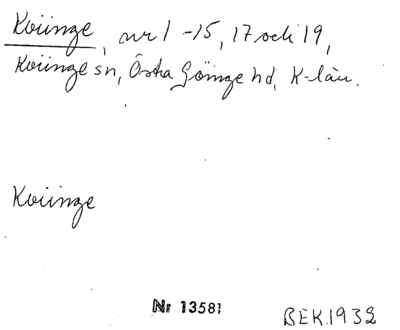 Kviinge, nr 1-15, 17 och 19,
Kviinge sn, Östra Göinge hd, K-län.
Kviinge
Nr 13581
BEK.1932